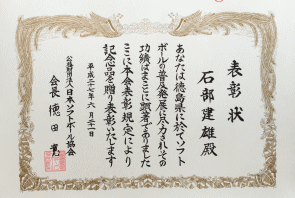 表彰状
石部建雄殿
あなたは徳島県に於てソフト
ボールの普及発展に尽力されその
功績はまことに顕著でありました
ここに本会表彰規定により
記念品を贈り表彰いたします
平成二十七年六月二十一日
公益財団法人日本ソフトボール協会
会長 徳田寛